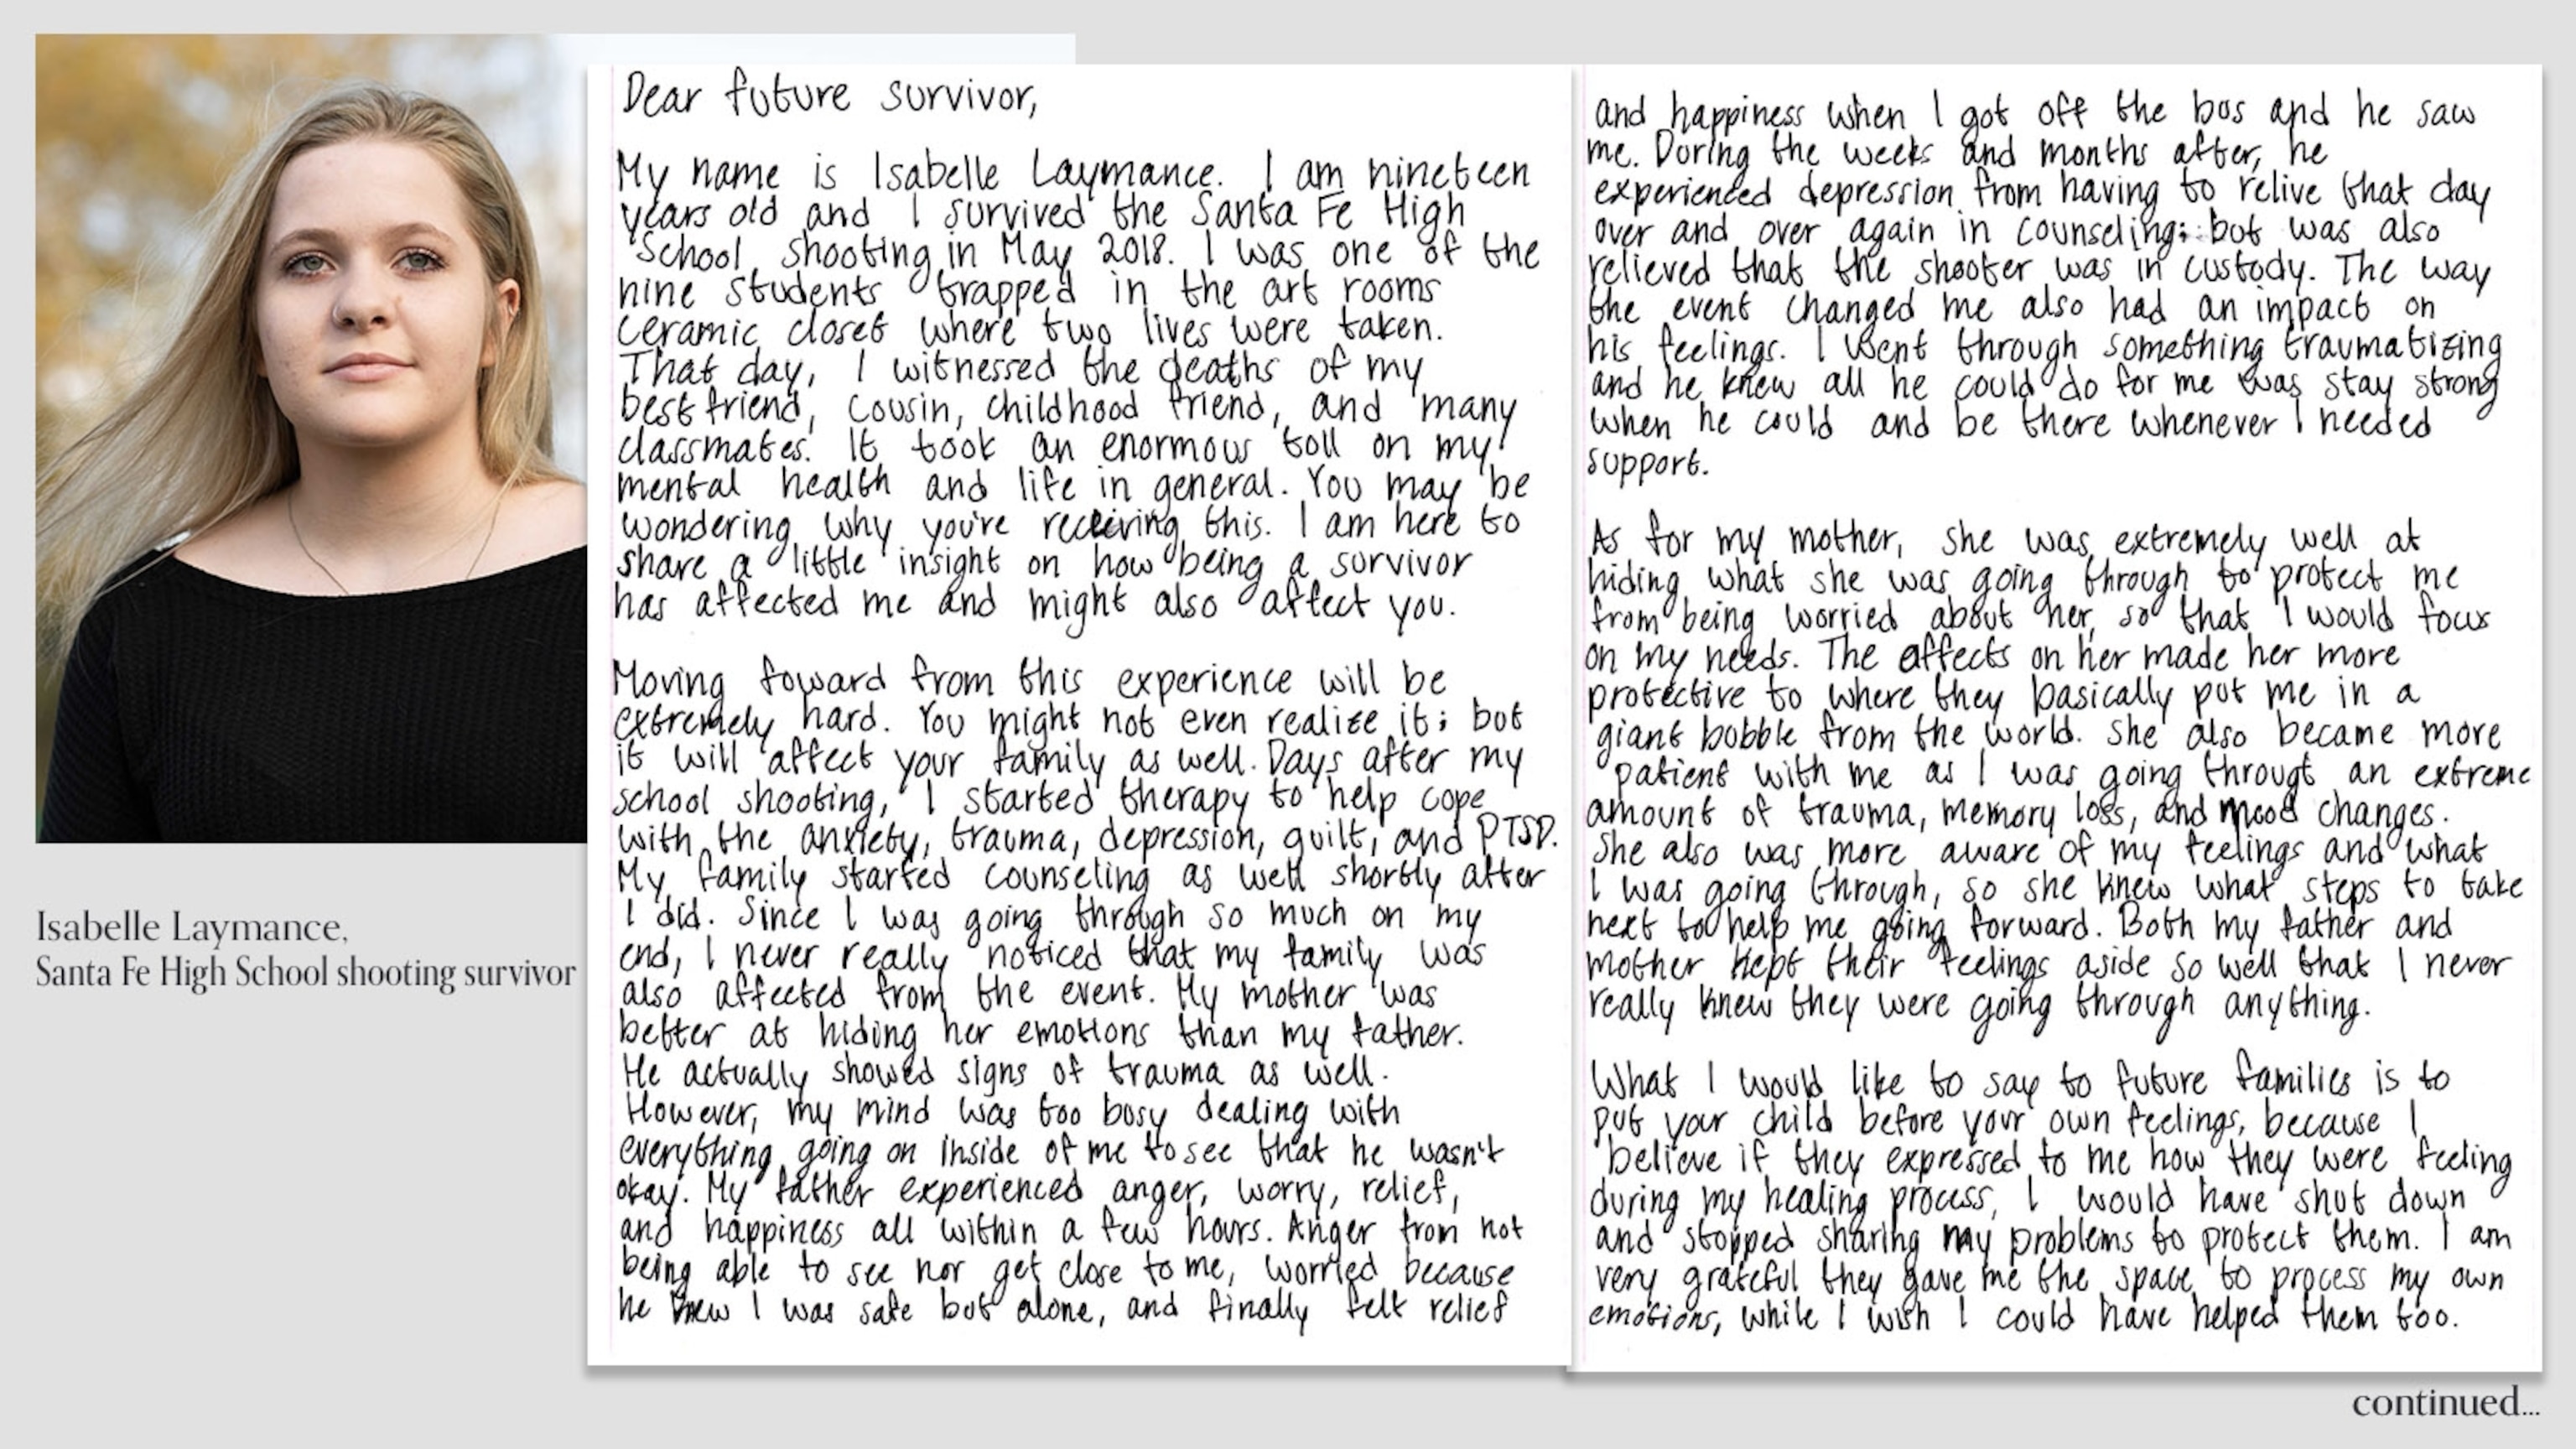 Dear future survivor,
My name is Isabelle Laymance. I am nineteen
years old and I survived the Santa Fe High
School shooting in May 2018. I was one of the
nine students trapped in the art rooms
ceramic closet where two lives were taken.
That day, I witnessed the deaths of my
best friend, cousin, childhood friend, and many
classmates. It took an enormous toll on my
mental health and life in general. You may be
wondering why you're receiving this. I am here to
share a little insight on how being a survivor
has affected me and might also affect you.
Moving foward from this experience will be
extremely hard. You might not even realize it; but
it will affect your family as well. Days after my
school shooting, I started therapy to help cope
with the anxiety, trauma, depression, guilt, and PTSD.
My family started counseling as well shortly after
I did. Since I was going through so much on my
end, I never really noticed that my family was
also affected from the event. My mother was
better at hiding her emotions than my father.
He actually showed signs of trauma as well.
However, my mind was too busy dealing with
everything going on inside of me to see that he wasn't
okay. My father experienced anger, worry, relief,
and happiness all within a few hours. Anger from not
being able to see nor get close to me, worried because
he knew I was safe but alone, and finally felt relief
and happiness when I got off the bus and he saw
me. During the weeks and months after, he
experienced depression from having to relive that day
over and over again in counseling; but was also
relieved that the shooter was in custody. The way
the event changed me also had an impact on
his feelings. I went through something traumatizing
and he knew all he could do for me was stay strong
when he could and be there whenever I needed
support.
As for my mother, she was extremely well at
hiding what she was going through to protect me
from being worried about her, so that I would focus
on my needs. The affects on her made her more
protective to where they basically put me in a
giant bubble from the world. She also became more
patient with me as I was going through an extreme
amount of trauma, memory loss, and mood changes.
She also was more aware of my feelings and what
I was going through, so she knew what steps to take
next to help me going forward. Both my father and
mother kept their feelings aside so well that I never
really knew they were going through anything.
What I would like to say to future families is to
put your child before your own feelings, because I
believe if they expressed to me how they were feeling
during my healing process, I would have shut down
and stopped sharing my problems to protect them. I am
very grateful they gave me the space to process my own
emotions, while I wish I could have helped them too.
Isabelle Laymance,
Santa Fe High School shooting survivor
continued...